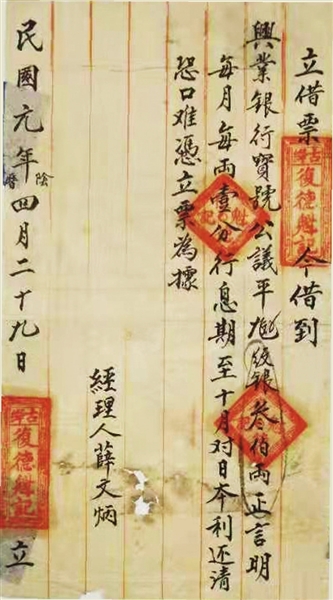 立借票 今借到
古學
復德魁記
興業銀行寶號公議平足紋銀叄伯両正言明
每月每両壹分行息期至十月对日本利还清
恐口难憑立票為據
經理人薛文炳
民國元年陰曆四月二十九日 立
古學
復德魁記